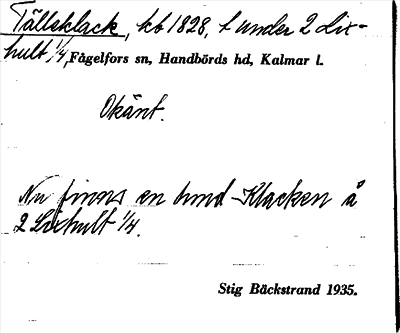 Tälleklack, kb 1828, t under 2 Lix-
hult 1/4, Fågelfors sn, Handbörds hd, Kalmar l.
Okänt.
Nu finns en hmd -Klacken å
2 Lixhult 1/4.
Stig Bäckstrand 1935.